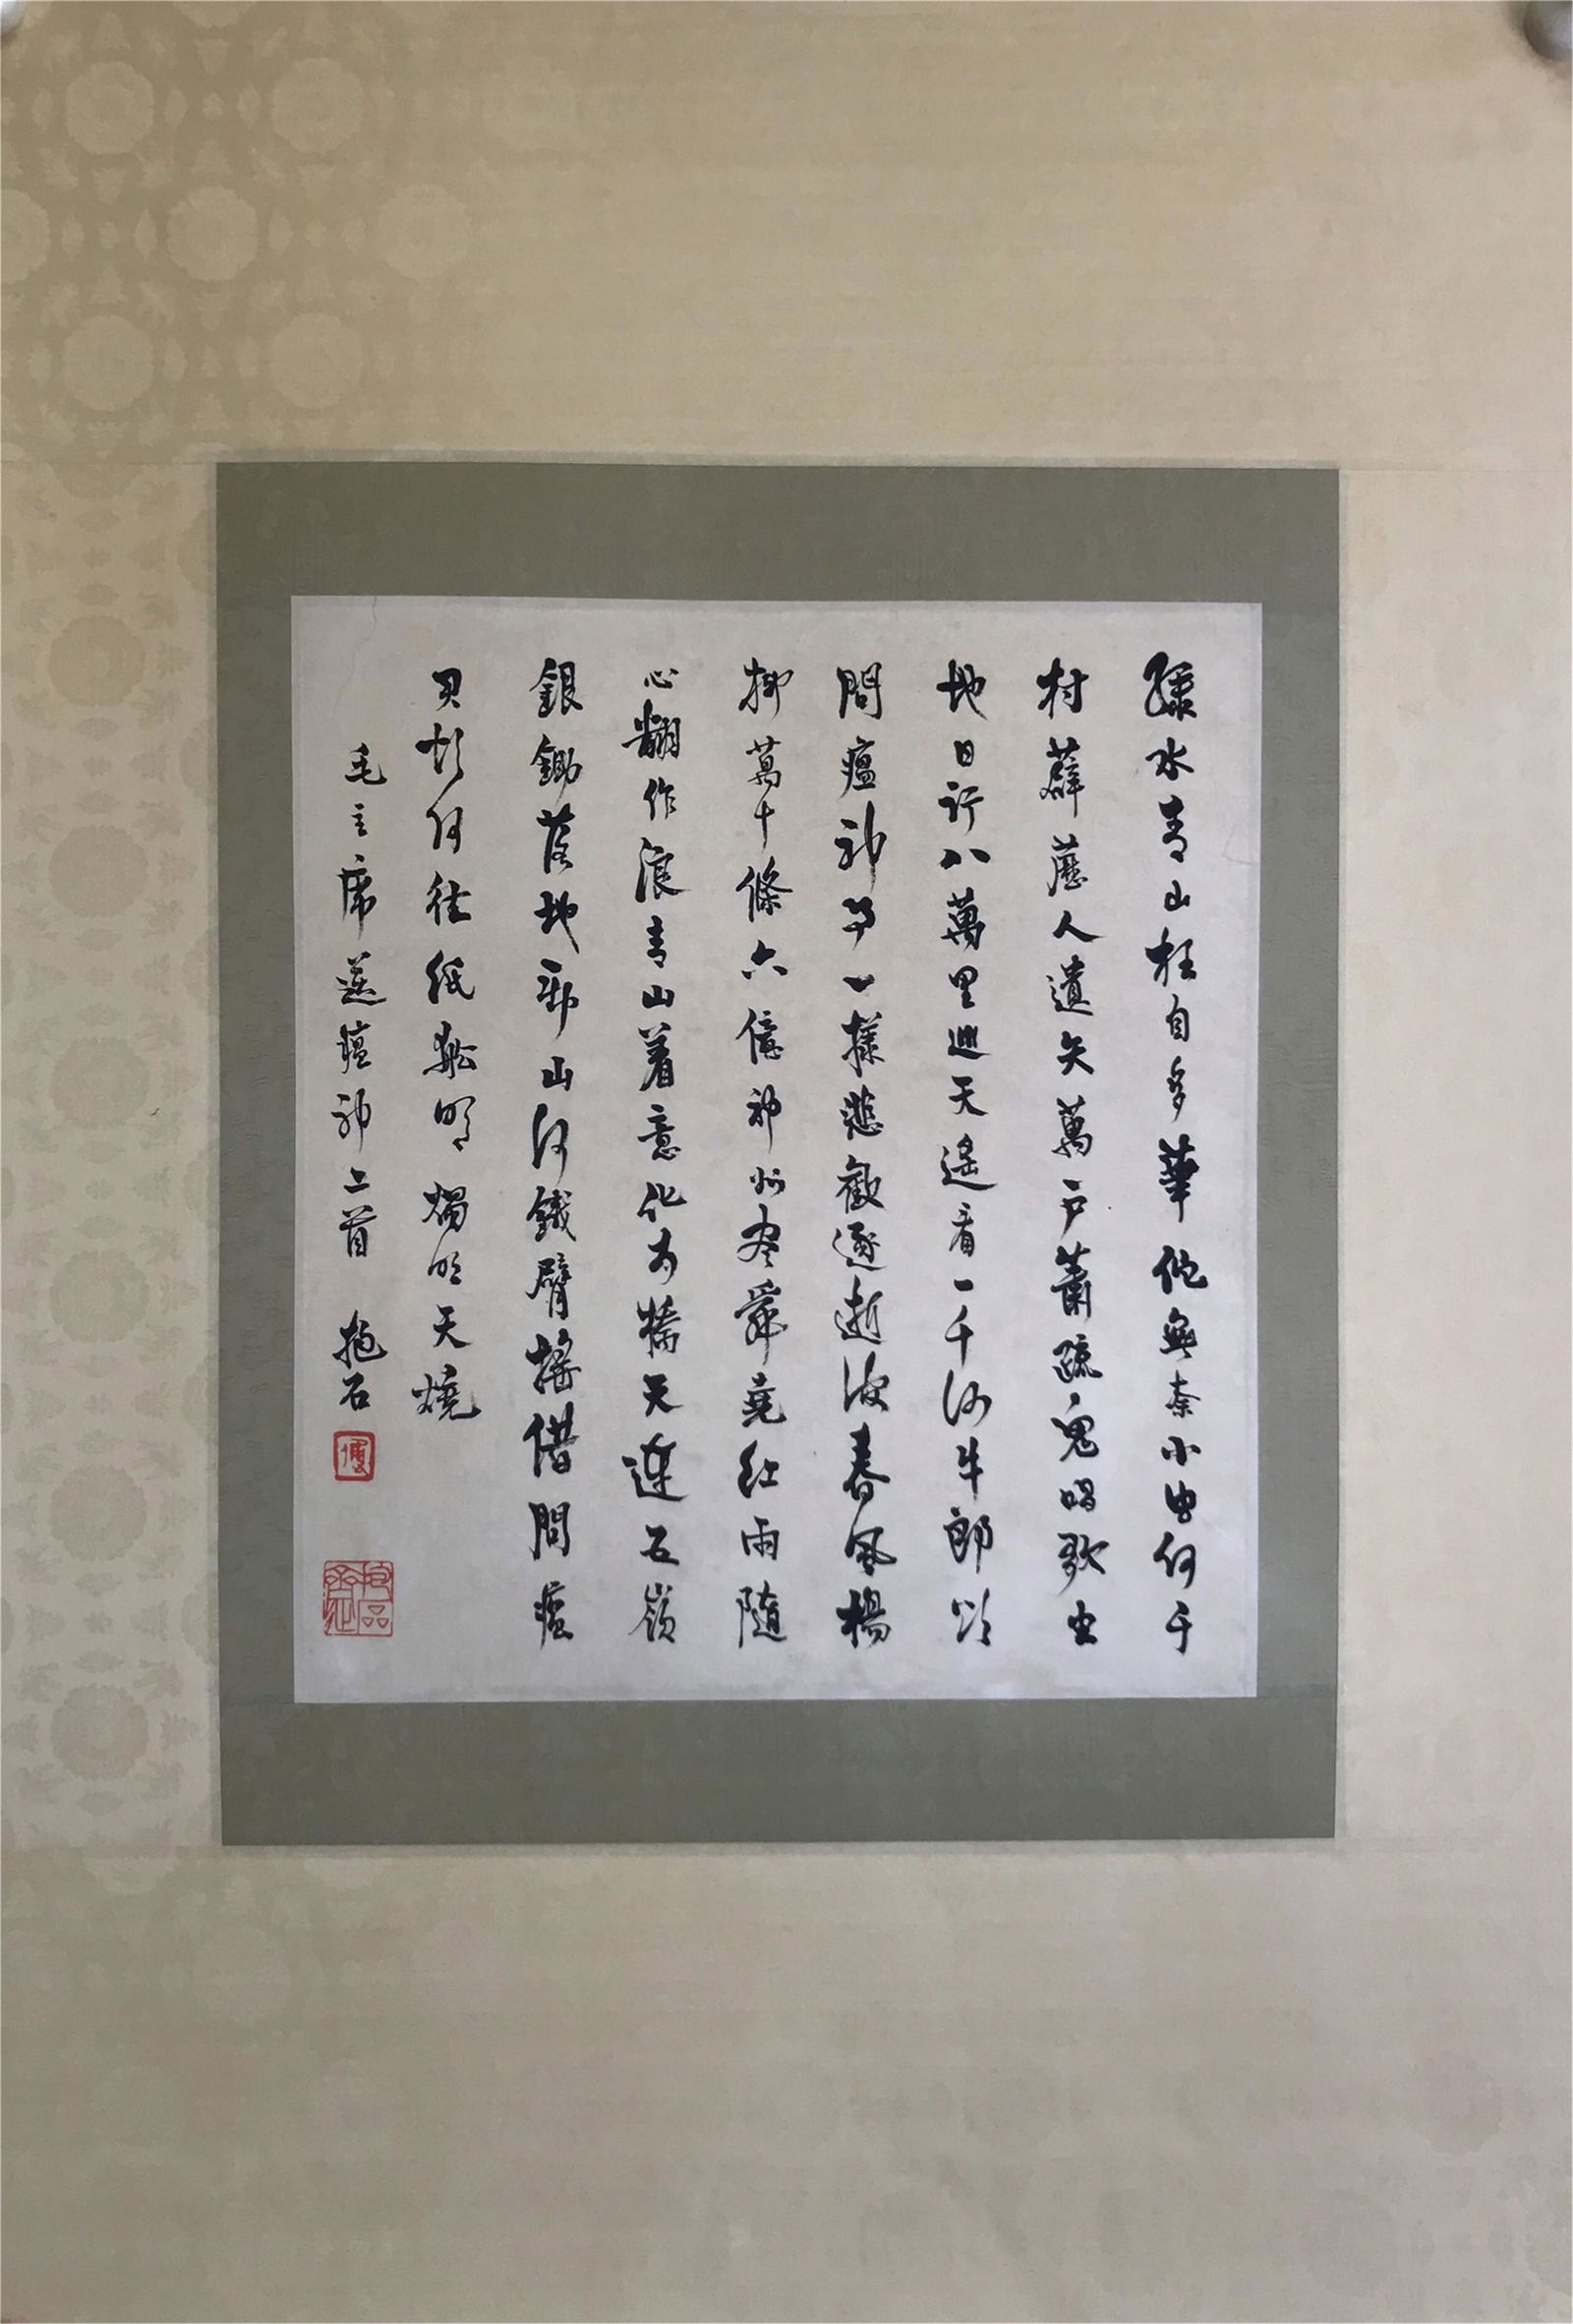 綠水青山枉自多華佗無奈小虫何千
村薜蘦人遺矢萬戶蕭疏鬼唱歌坐
地日行八萬里巡天遙看一千河牛郎欲
問瘟神事一樣悲歡逐逝波春風楊
柳萬千條六億神州盡舜堯紅雨隨
心翻作浪青山着意化為橋天連五嶺
銀鋤落地動山河鐵臂搖借問瘟
君欲何往紙船明燭照天燒
毛主席送瘟神二首 抱石
傅